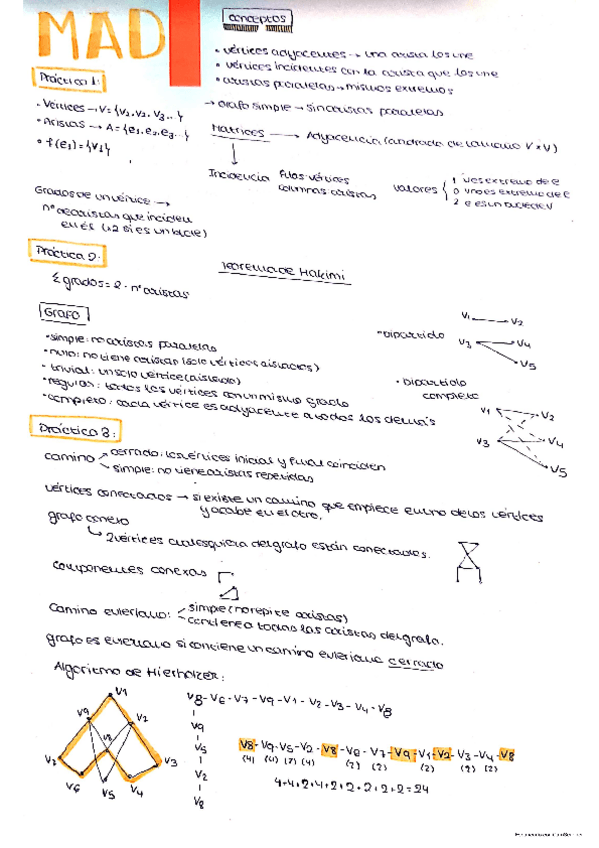 MAD
conceptos
• vértices adyacentes → una arista los une
• vértices incidentes con la arista que los une
• aristas paralelas → mismos extremos
→ grafo simple → sin aristas paralelas
Práctica 1:
• Vértices → V = {v1, v2, v3...}
• Aristas → A = {e1, e2, e3...}
• f(e1) = {v1}
Matrices → Adyacencia (cuadrada de tamaño V × V)
Incidencia
filas: vértices
columnas: aristas
valores
1 v es extremo de e
0 v no es extremo de e
2 e es un bucle de v
Grados de un vértice →
nº de aristas que inciden
en él (+2 si es un bucle)
Práctica 2:
Σ grados = 2 · nº aristas
Teorema de Hakimi
Grafo
• simple: no aristas paralelas
• nulo: no tiene aristas (solo vértices aislados)
• trivial: un solo vértice (aislado)
• regular: todos los vértices con un mismo grado
• completo: cada vértice es adyacente a todos los demás
• Bipartido
V1 V2
V3 V4
V5
• Bipartido
completo
V1 V2
V3 V4
V5
Práctica 3:
camino
cerrado: los vértices inicial y final coinciden
simple: no tiene aristas repetidas
vértices conectados → si existe un camino que empiece en uno de los vértices
y acabe en el otro.
grafo conexo
2 vértices cualesquiera del grafo están conectados.
componentes conexas
Camino euleriano:
simple (no repite aristas)
contiene a todas las aristas del grafo.
grafo es euleriano si contiene un camino euleriano cerrado
Algoritmo de Hierholzer:
V8 - V6 - V7 - V9 - V1 - V2 - V3 - V4 - V8
V9
V5
V2
V8
V8 - V9 - V5 - V2 - V8 - V6 - V7 - V9 - V1 - V2 - V3 - V4 - V8
4+4+2+4+2+2+2+2+2=24